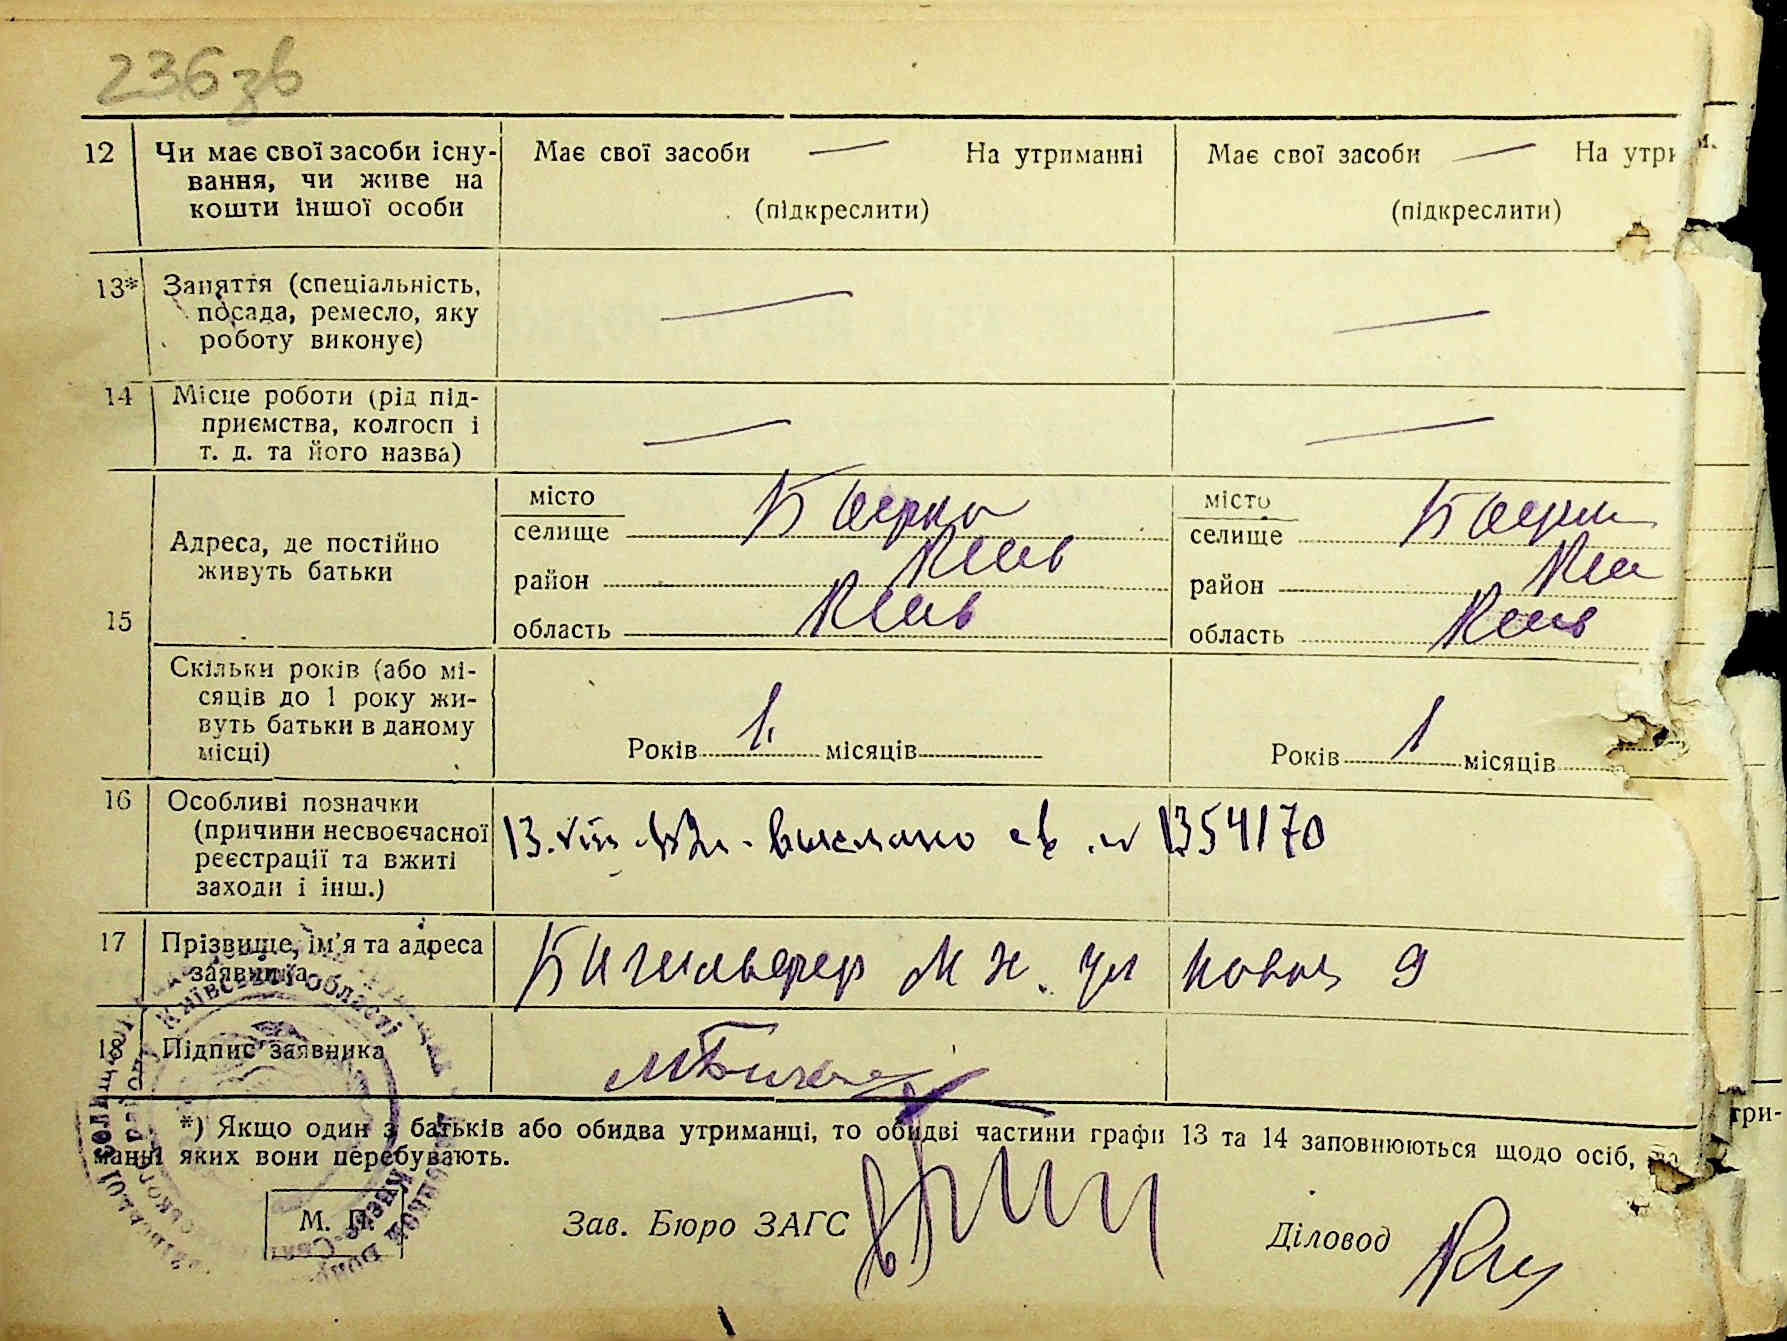 236 зв
12 Чи має свої засоби існу- Має свої засоби — На утриманні Має свої засоби — На утри
вання, чи живе на
кошти іншої особи (підкреслити) (підкреслити)
13* Заняття (спеціальність,
посада, ремесло, яку — —
роботу виконує)
14 Місце роботи (рід під-
приємства, колгосп і — —
т. д. та його назва)
15 Адреса, де постійно
живуть батьки
місто Боярка місто Боярка
селище селище
район Київ район Киї
область Київ область Київ
Скільки років (або мі-
сяців до 1 року жи-
вуть батьки в даному
місці)
Років 1. місяців Років 1 місяців
16 Особливі позначки
(причини несвоєчасної 13.VIII вислано св. № 1354170
реєстрації та вжиті
заходи і інш.)
17 Прізвище, ім'я та адреса
заявника М Н. ул новая 9
18 Підпис заявника
*) Якщо один з батьків або обидва утриманці, то обидві частини графи 13 та 14 заповнюються щодо осіб, на
манні яких вони перебувають.
М. П. Зав. Бюро ЗАГС Діловод
Київської області
три-